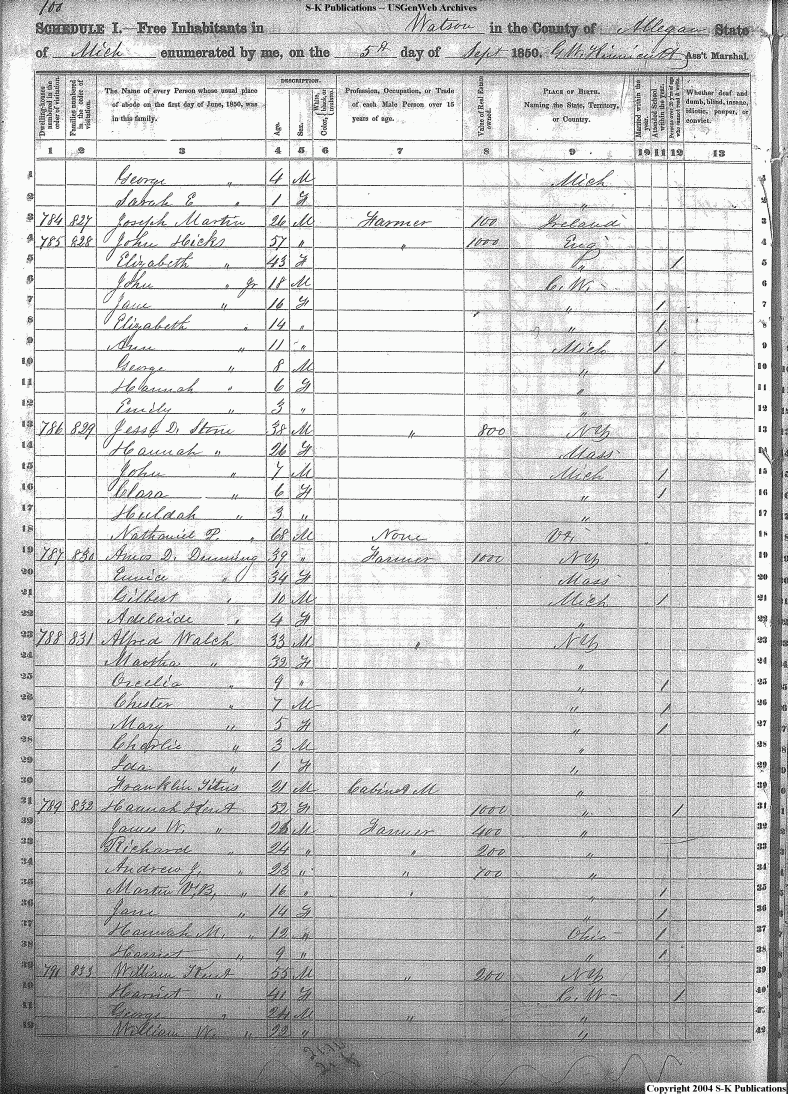 S-K Publications – USGenWeb Archives
100
SCHEDULE I.—Free Inhabitants in Watson in the County of Allegan State
of Mich enumerated by me, on the 5th day of Sept 1850. Ass't Marshal.
Dwelling-houses numbered in the order of visitation. Families numbered in the order of visitation. The Name of every Person whose usual place of abode on the first day of June, 1850, was in this family. DESCRIPTION. Age. Sex. Color, White, black, or mulatto. Profession, Occupation, or Trade of each Male Person over 15 years of age. Value of Real Estate owned. PLACE OF BIRTH. Naming the State, Territory, or Country. Married within the year. Attended School within the year. Persons over 20 y'rs of age who cannot read & write. Whether deaf and dumb, blind, insane, idiotic, pauper, or convict.
1 2 3 4 5 6 7 8 9 10 11 12 13
1 George " 4 M Mich 1
2 Sarah E " 1 F " 2
3 784 827 Joseph Martin 26 M Farmer 100 Ireland 3
4 785 828 John Hicks 57 " " 1000 Eng 4
5 Elizabeth " 43 F " 1 5
6 John " Jr 18 M C.W. 6
7 Jane " 16 F " 1 7
8 Elizabeth " 14 " " 1 8
9 Ann " 11 " Mich 1 9
10 George " 8 M " 1 10
11 Hannah " 6 F " 11
12 Emily " 3 " " 12
13 786 829 Jesse D. Stone 38 M " 800 NY 13
14 Hannah " 26 F Mass 14
15 John " 7 M Mich 1 15
16 Clara " 6 F " 1 16
17 Huldah " 3 " " 17
18 Nathaniel P. " 68 M None Vt. 18
19 787 830 Amos D. Dunning 39 " Farmer 1000 NY 19
20 Eunice " 34 F Mass 20
21 Gilbert " 10 M Mich 1 21
22 Adelaide " 4 F " 22
23 788 831 Alfred Walch 33 M " NY 23
24 Martha " 32 F " 24
25 Orcelia " 9 " " 1 25
26 Chester " 7 M " 1 26
27 Mary " 5 F " 1 27
28 Charlie " 3 M " 28
29 Ida " 1 F " 29
30 Franklin Titus 21 M Cabinet M " 30
31 789 832 Hannah Kent 52 F 1000 " 1 31
32 James W. " 26 M Farmer 400 " 32
33 Richard " 24 " " 200 " 33
34 Andrew J. " 23 " " 700 " 34
35 Martin V.B. " 16 " " 1 35
36 Jane " 14 F " 1 36
37 Hannah M. " 12 " Ohio 1 37
38 Harriet " 9 " " 1 38
39 791 833 William Kent 55 M " 200 NY 39
40 Harriet " 41 F C.W. 1 40
41 George " 24 M " " 41
42 William W. " 22 " " 42
Copyright 2004 S-K Publications